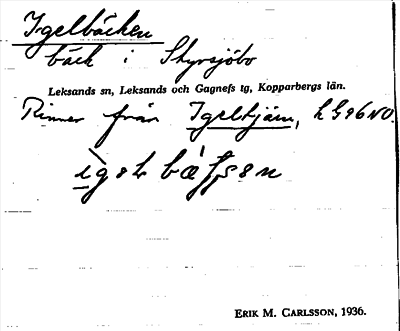 Igelbäcken
bäck i Styrsjöbo
Leksands sn, Leksands och Gagnefs tg, Kopparbergs län.
Rinner från Igeltjärn,
ERIK M. CARLSSON, 1936.